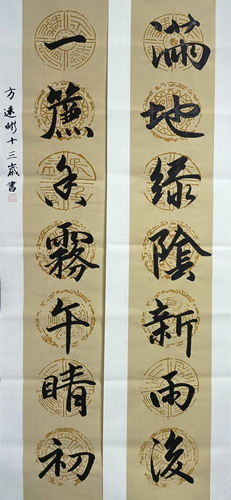 滿地綠陰新雨後
一簾香霧午晴初
方彬十三歲書